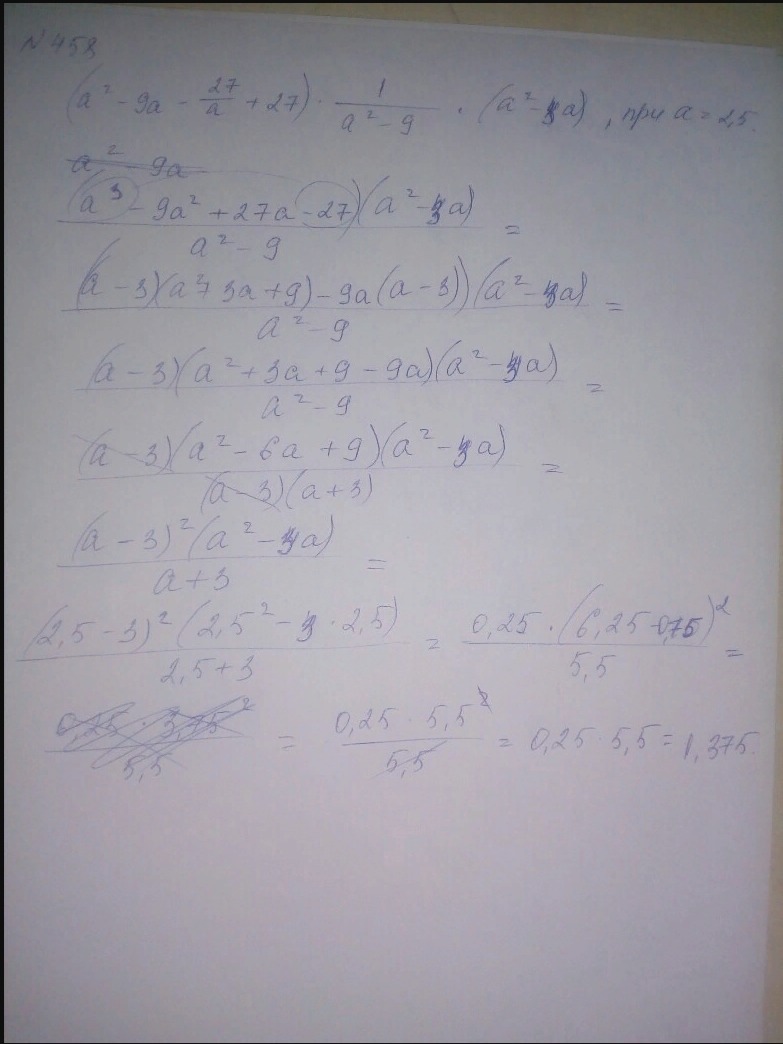 N 458
(a² - 9a - 27/a + 27) · 1/(a² - 9) · (a² - 3a), при a = 2,5.
a² - 9a
(a³ - 9a² + 27a - 27)(a² - 3a) / (a² - 9) =
(a - 3)(a² + 3a + 9) - 9a(a - 3))(a² - 3a) / (a² - 9) =
(a - 3)(a² + 3a + 9 - 9a)(a² - 3a) / (a² - 9) =
(a - 3)(a² - 6a + 9)(a² - 3a) / (a - 3)(a + 3) =
(a - 3)²(a² - 3a) / (a + 3) =
(2,5 - 3)²(2,5² - 3 · 2,5) / (2,5 + 3) = 0,25 · (6,25 - 0,75)² / 5,5 =
= 0,25 · 5,5² / 5,5 = 0,25 · 5,5 = 1,375.